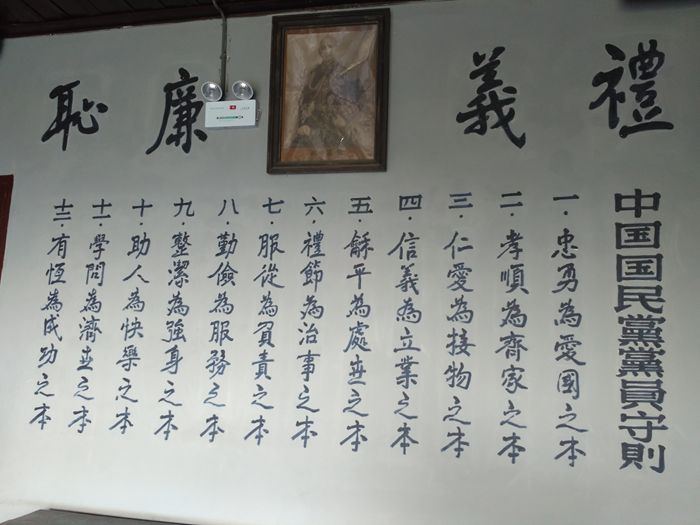 禮義廉恥
中国国民黨黨員守則
一·忠勇為愛國之本
二·孝順為齊家之本
三·仁愛為接物之本
四·信義為立業之本
五·龢平為處世之本
六·禮節為治事之本
七·服從為負責之本
八·勤儉為服務之本
九·整潔為強身之本
十·助人為快樂之本
十一·學問為濟世之本
十二·有恆為成功之本